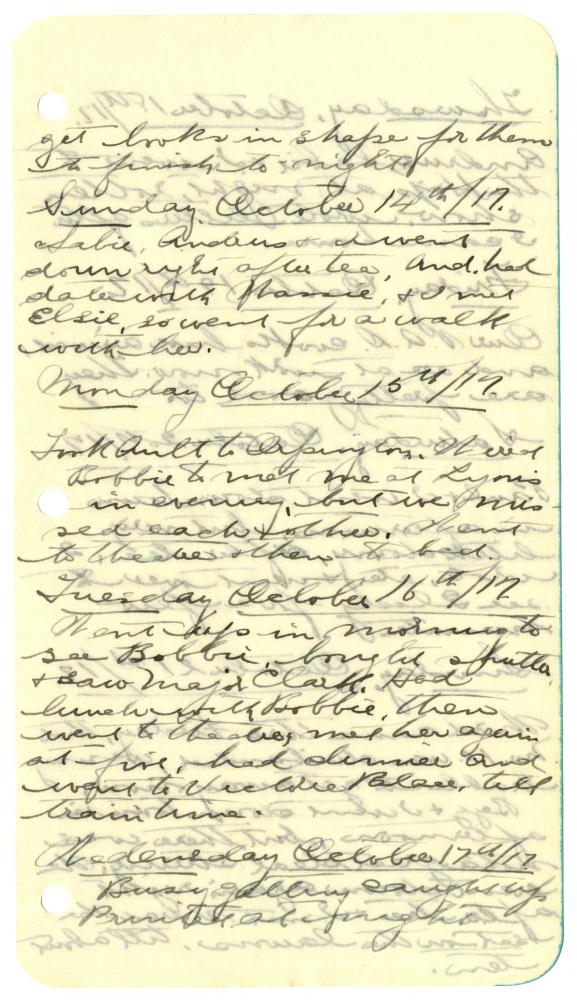 get books in shape for them
to finish to-night.
Sunday October 14th/17.
Sabie, Andrus & I went
down right after tea, And. had
date with Massie, & I met
Elsie, so went for a walk
with her.
Monday October 15th/17.
Took Ault to Orpington. Wired
Bobbie to met me at Lyons
in evening, but we mis-
sed each other. Went
to theatre & then to bed.
Tuesday October 16th/17
Went up in morning to
see Bobbie, bought
& saw Major Clark. Had
lunch with Bobbie, then
went to theatre, met her again
at five, had dinner and
went to Victoria Palace, till
train time.
Wednesday October 17th/17
Busy getting caught up
at night